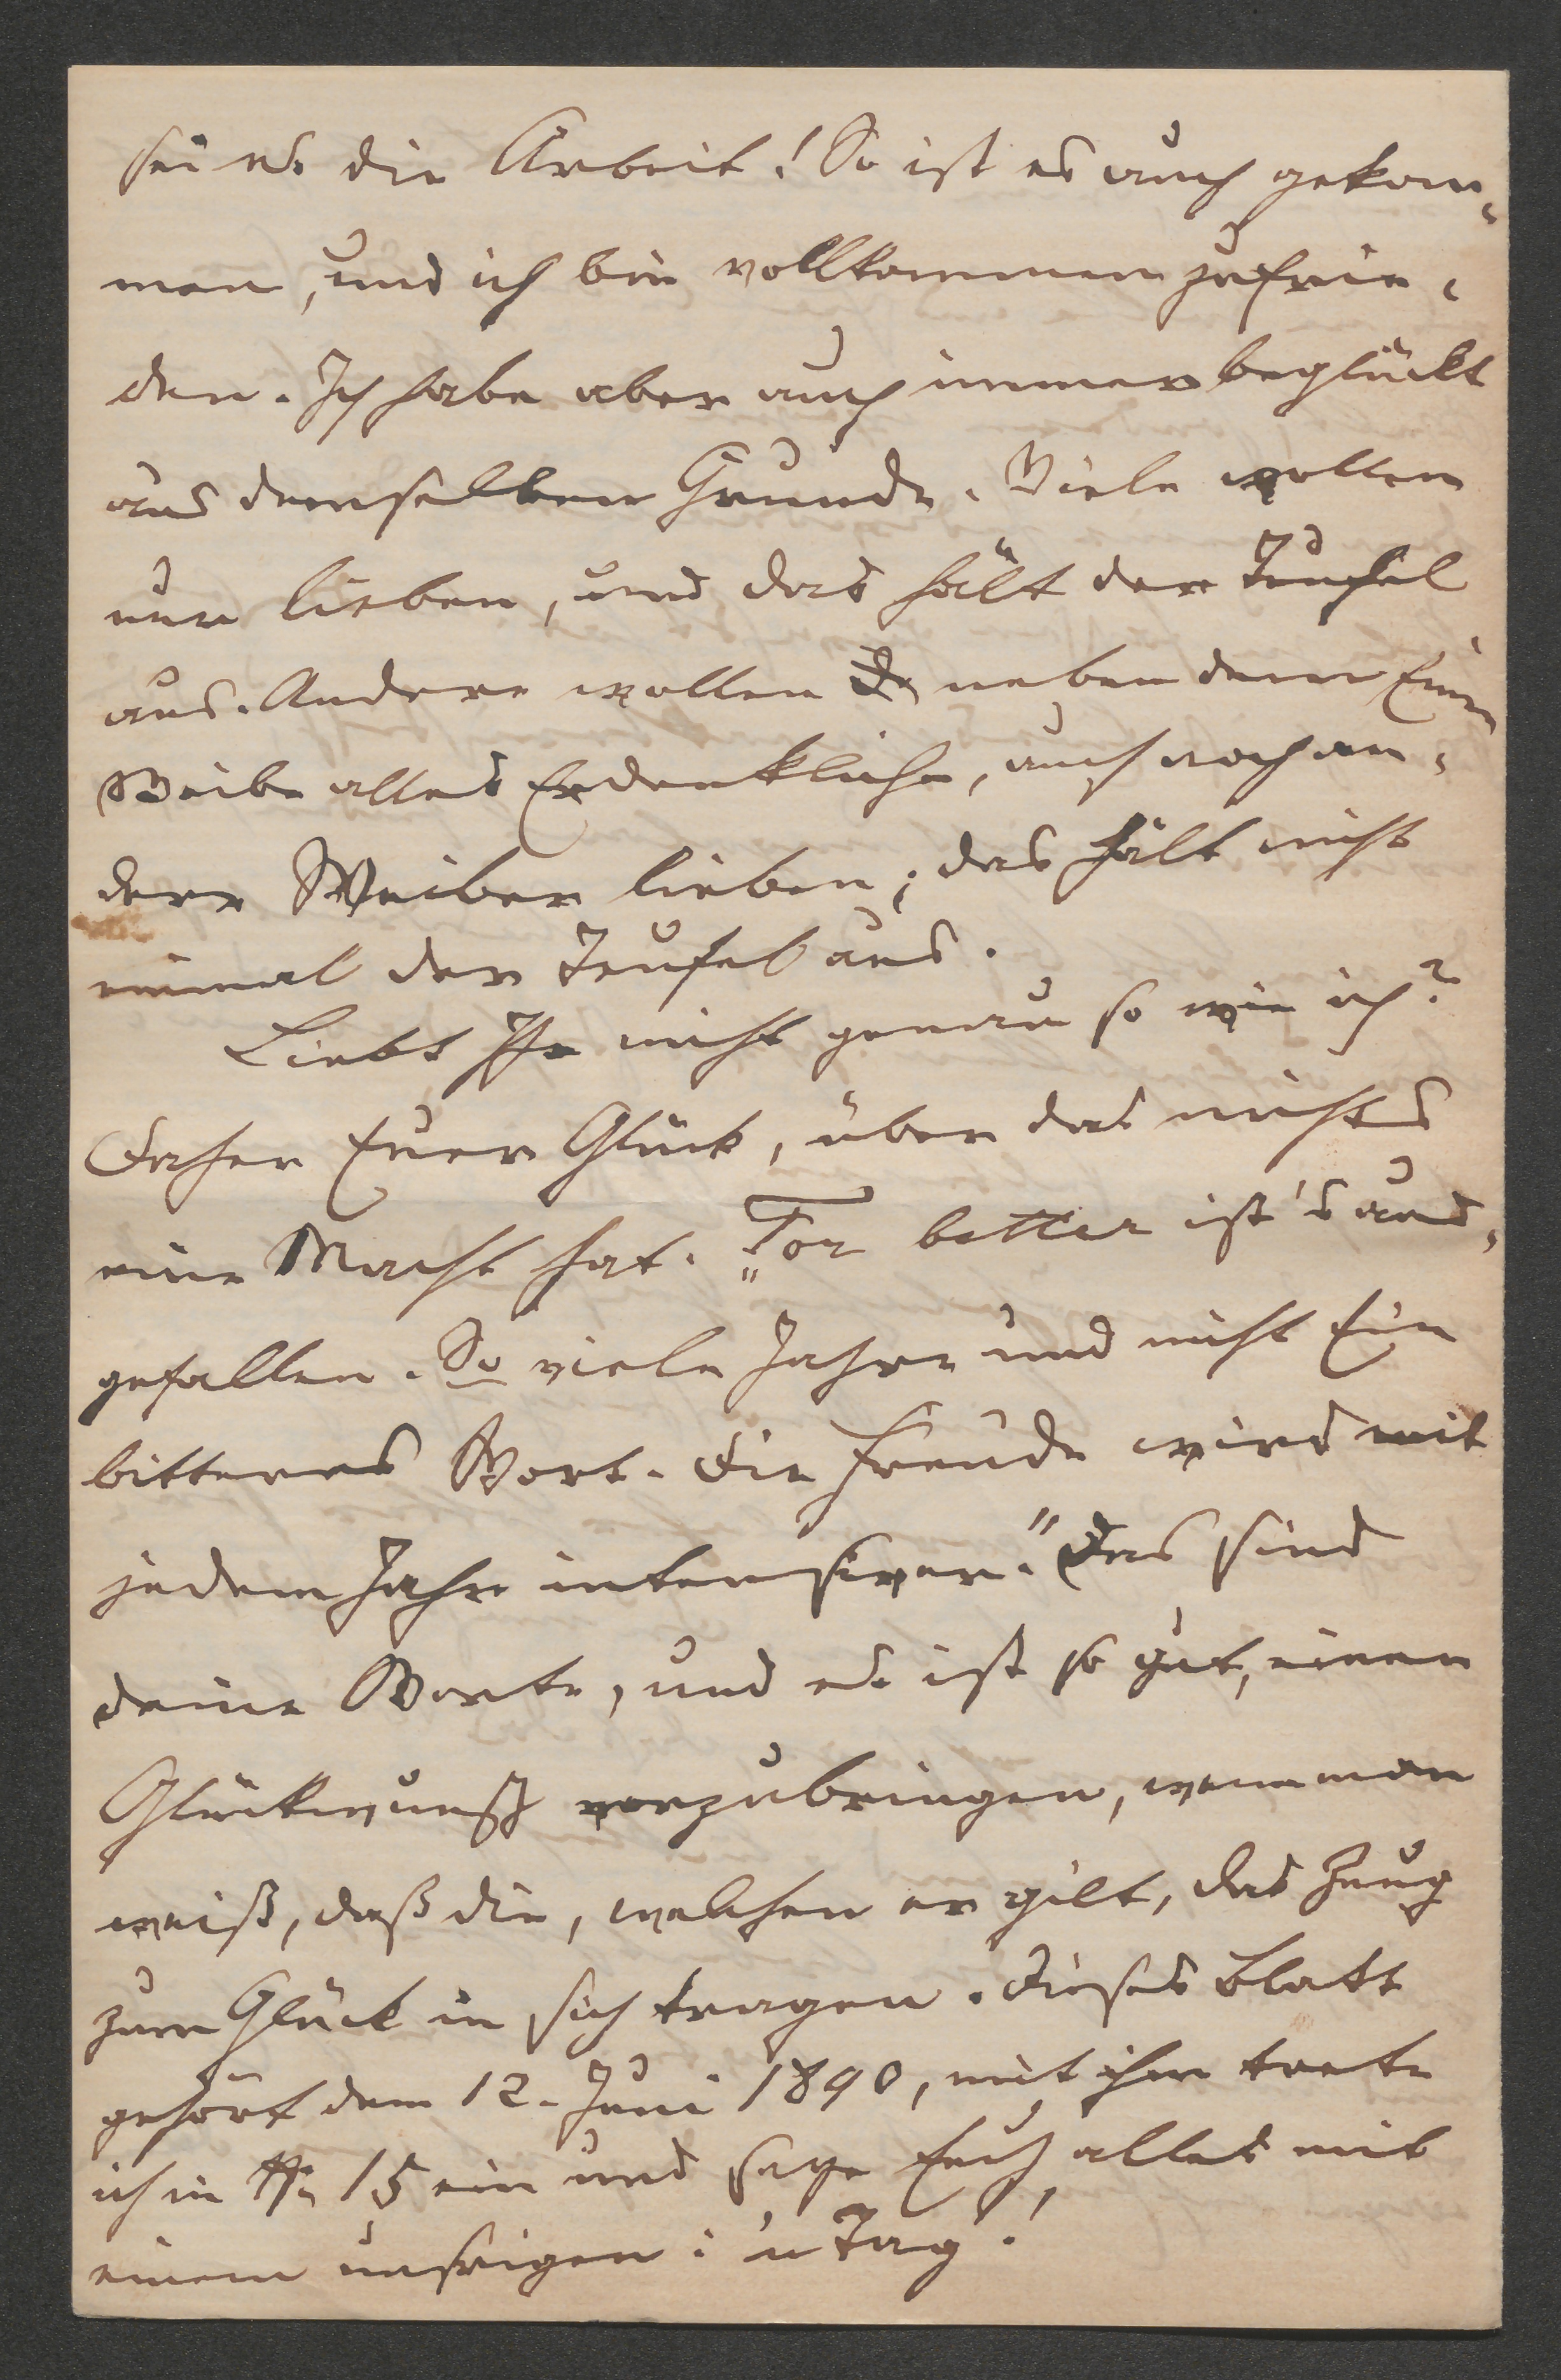 sei es die Arbeit! So ist es auch gekom-
men, und ich bin vollkommen zufrie-
den. Ich habe aber auch immer beglückt
aus demselben Grunde. Viele wollen
nur lieben, und das hält der Teufel
aus. Andere wollen neben dem Einen
Weibe alles Erdenkliche, auch noch an-
dere Weiber lieben; das hält nicht
einmal der Teufel aus.
Liebt Ihr nicht genau so wie ich?
Daher Euer Glück, über das nichts
eine Macht hat. „For better ist's aus-
gefallen. So viele Jahre und nicht Ein
bitteres Wort. Die Freude wird mit
jedem Jahre intensiver.“ Das sind
deine Worte, und es ist so gut, einen
Glückwunsch vorzubringen, wenn man
weiß, daß die, welchen er gilt, das Zeug
zum Glück in sich tragen. Dieses Blatt
gehört dem 12. Juni 1890, mit ihm trete
ich in 15 ein und sage Euch alles mit
einem unsrigen: 'n Tag!